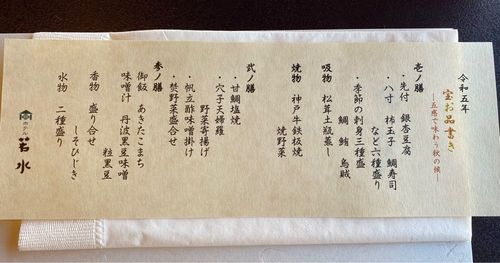 令和五年
宝お品書き
五感で味わう秋の候
壱ノ膳
・先付 銀杏豆腐
・八寸 柿玉子 鯛寿司
など六種盛り
・季節の刺身三種盛
鯛 鮪 烏賊
吸物 松茸土瓶蒸し
焼物 神戸牛鉄板焼
焼野菜
弐ノ膳
・甘鯛塩焼
・穴子天婦羅
野菜寄揚げ
・帆立酢味噌掛け
・焚野菜盛合せ
参ノ膳
御飯 あきたこまち
味噌汁 丹波黒豆味噌
粒黒豆
香物 盛り合せ
しそひじき
水物 二種盛り
若水